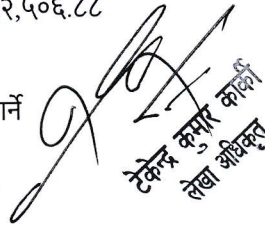 २,५०६.८८
र्ने
टेकेन्द्र कुमार कार्की
लेखा अधिकृत